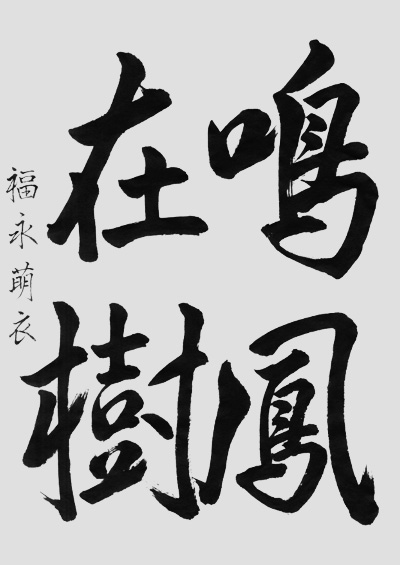 鳴鳳
在樹
福永萌衣